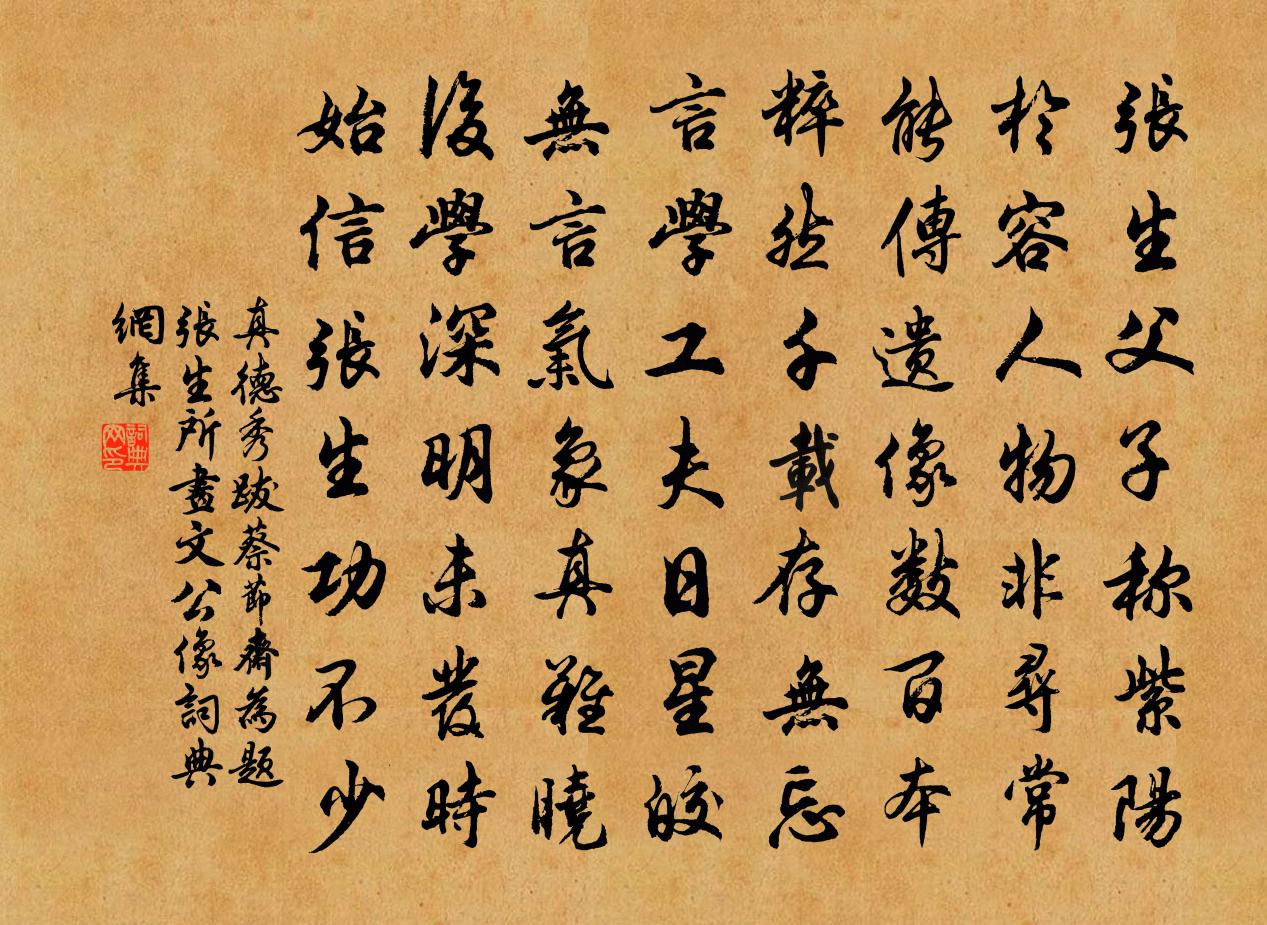 張生父子称紫陽
於容人物非尋常
能傳遺像数百本
粹然千載存無忘
言學工夫日星皎
無言氣象真難曉
後學深明未發時
始信張生功不少
真德秀跋蔡節齋為題
張生所畫文公像詞典
網集
詞典網印